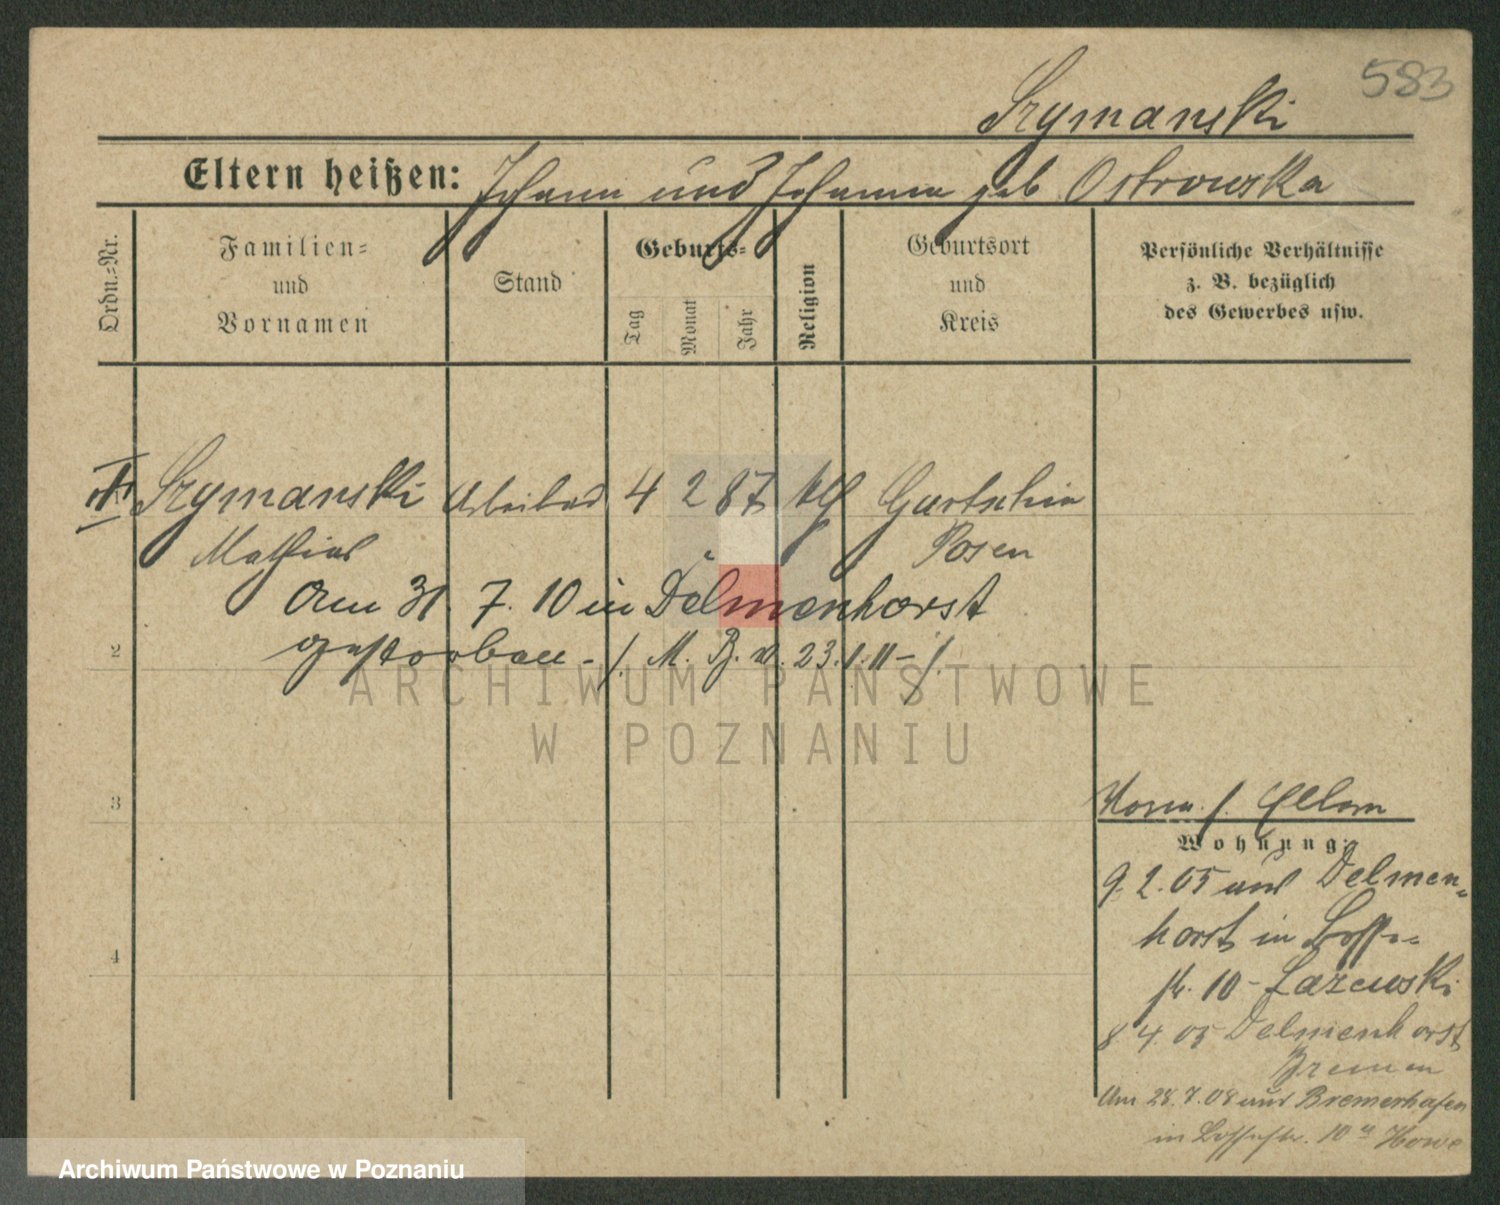 583
Szymanski
Eltern heißen: Johann und Johanna geb Ostrowska
Ordn.=Nr.
Familien=
und
Vornamen
Stand
Geburts=
Tag
Monat
Jahr
Religion
Geburtsort
und
Kreis
Persönliche Verhältnisse
z. B. bezüglich
des Gewerbes usw.
1 Szymanski Arbeiter 4 2 87 Gurtschin
Mathias Posen
Am 31. 7. 10 in Delmenhorst
2 gestorben -/. M. B. v. 23.1.11 -/.
ARCHIWUM PAŃSTWOWE
W POZNANIU
3
4
Eltern
Wohnung:
9.2.05 aus Delmen-
horst in
10 - Lazewski
8 4.05 Delmenhorst
Bremen
Am 28.7.08 aus Bremerhafen
in 10
Archiwum Państwowe w Poznaniu